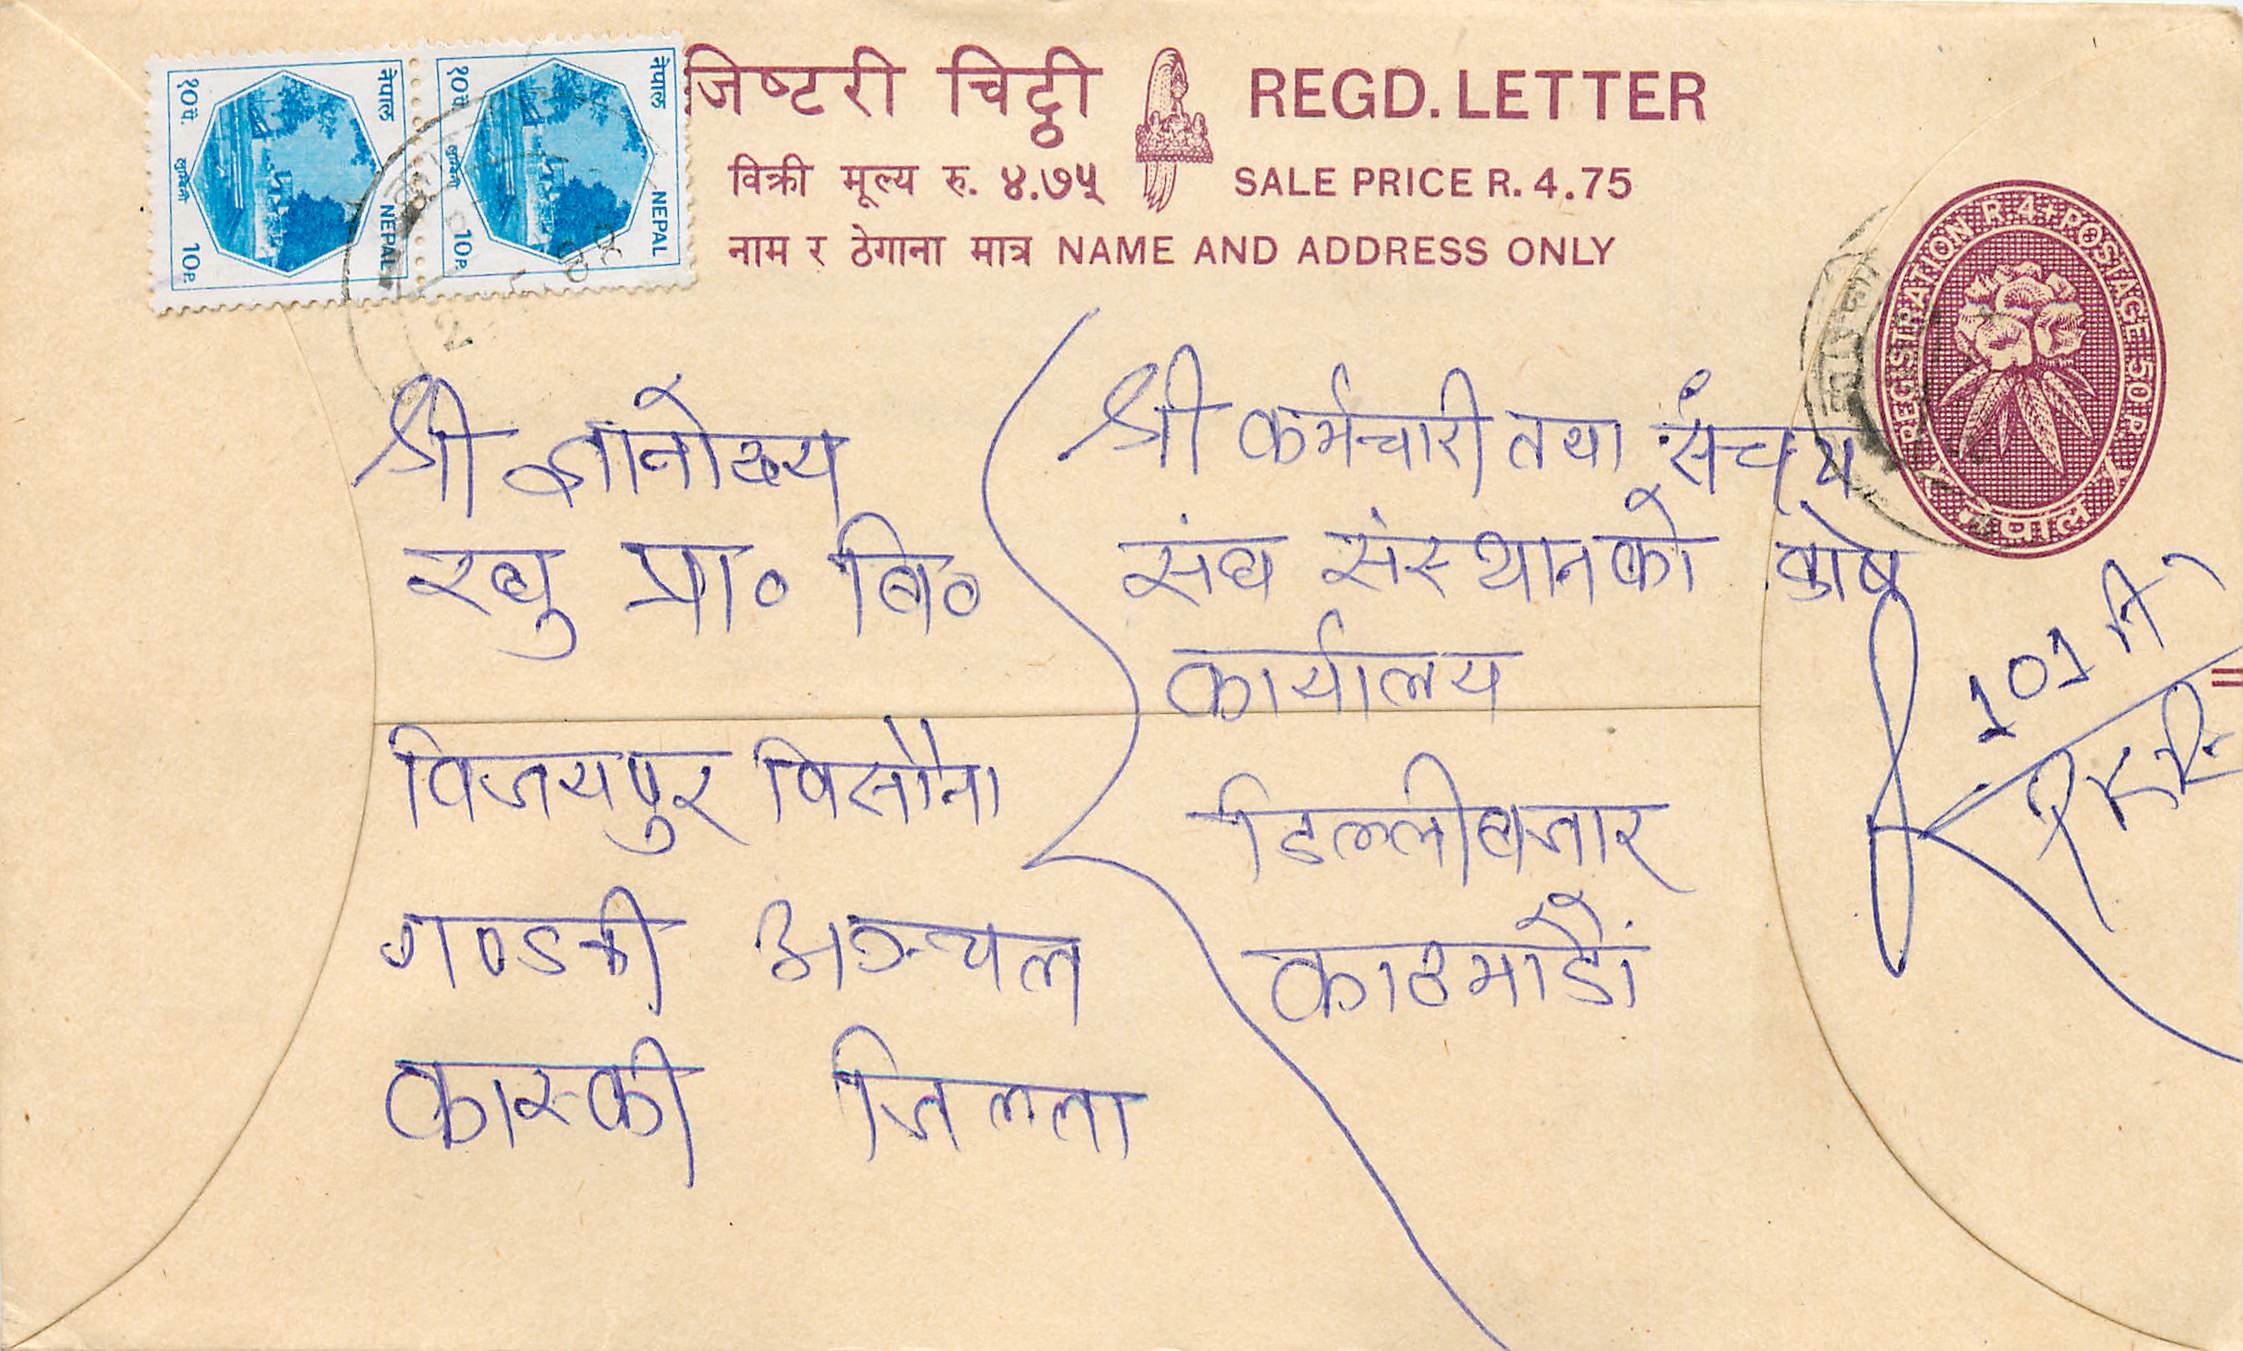 जिष्टरी चिट्ठी REGD. LETTER
विक्री मूल्य रु. ४.७५ SALE PRICE R. 4.75
नाम र ठेगाना मात्र NAME AND ADDRESS ONLY
नेपाल
१० पै.
लुम्बिनी
NEPAL
10 P.
नेपाल
१० पै.
लुम्बिनी
NEPAL
10 P.
REGISTRATION R.4+POSTAGE 50 P.
नेपाल
श्री ज्ञानोदय
रघु प्रा० बि०
विजयपुर विसौना
गण्डकी अञ्चल
कास्की जिल्ला
श्री कर्मचारी तथा संचय
संघ संस्थानको कोष
कार्यालय
डिल्लीबजार
काठमाडौं
101